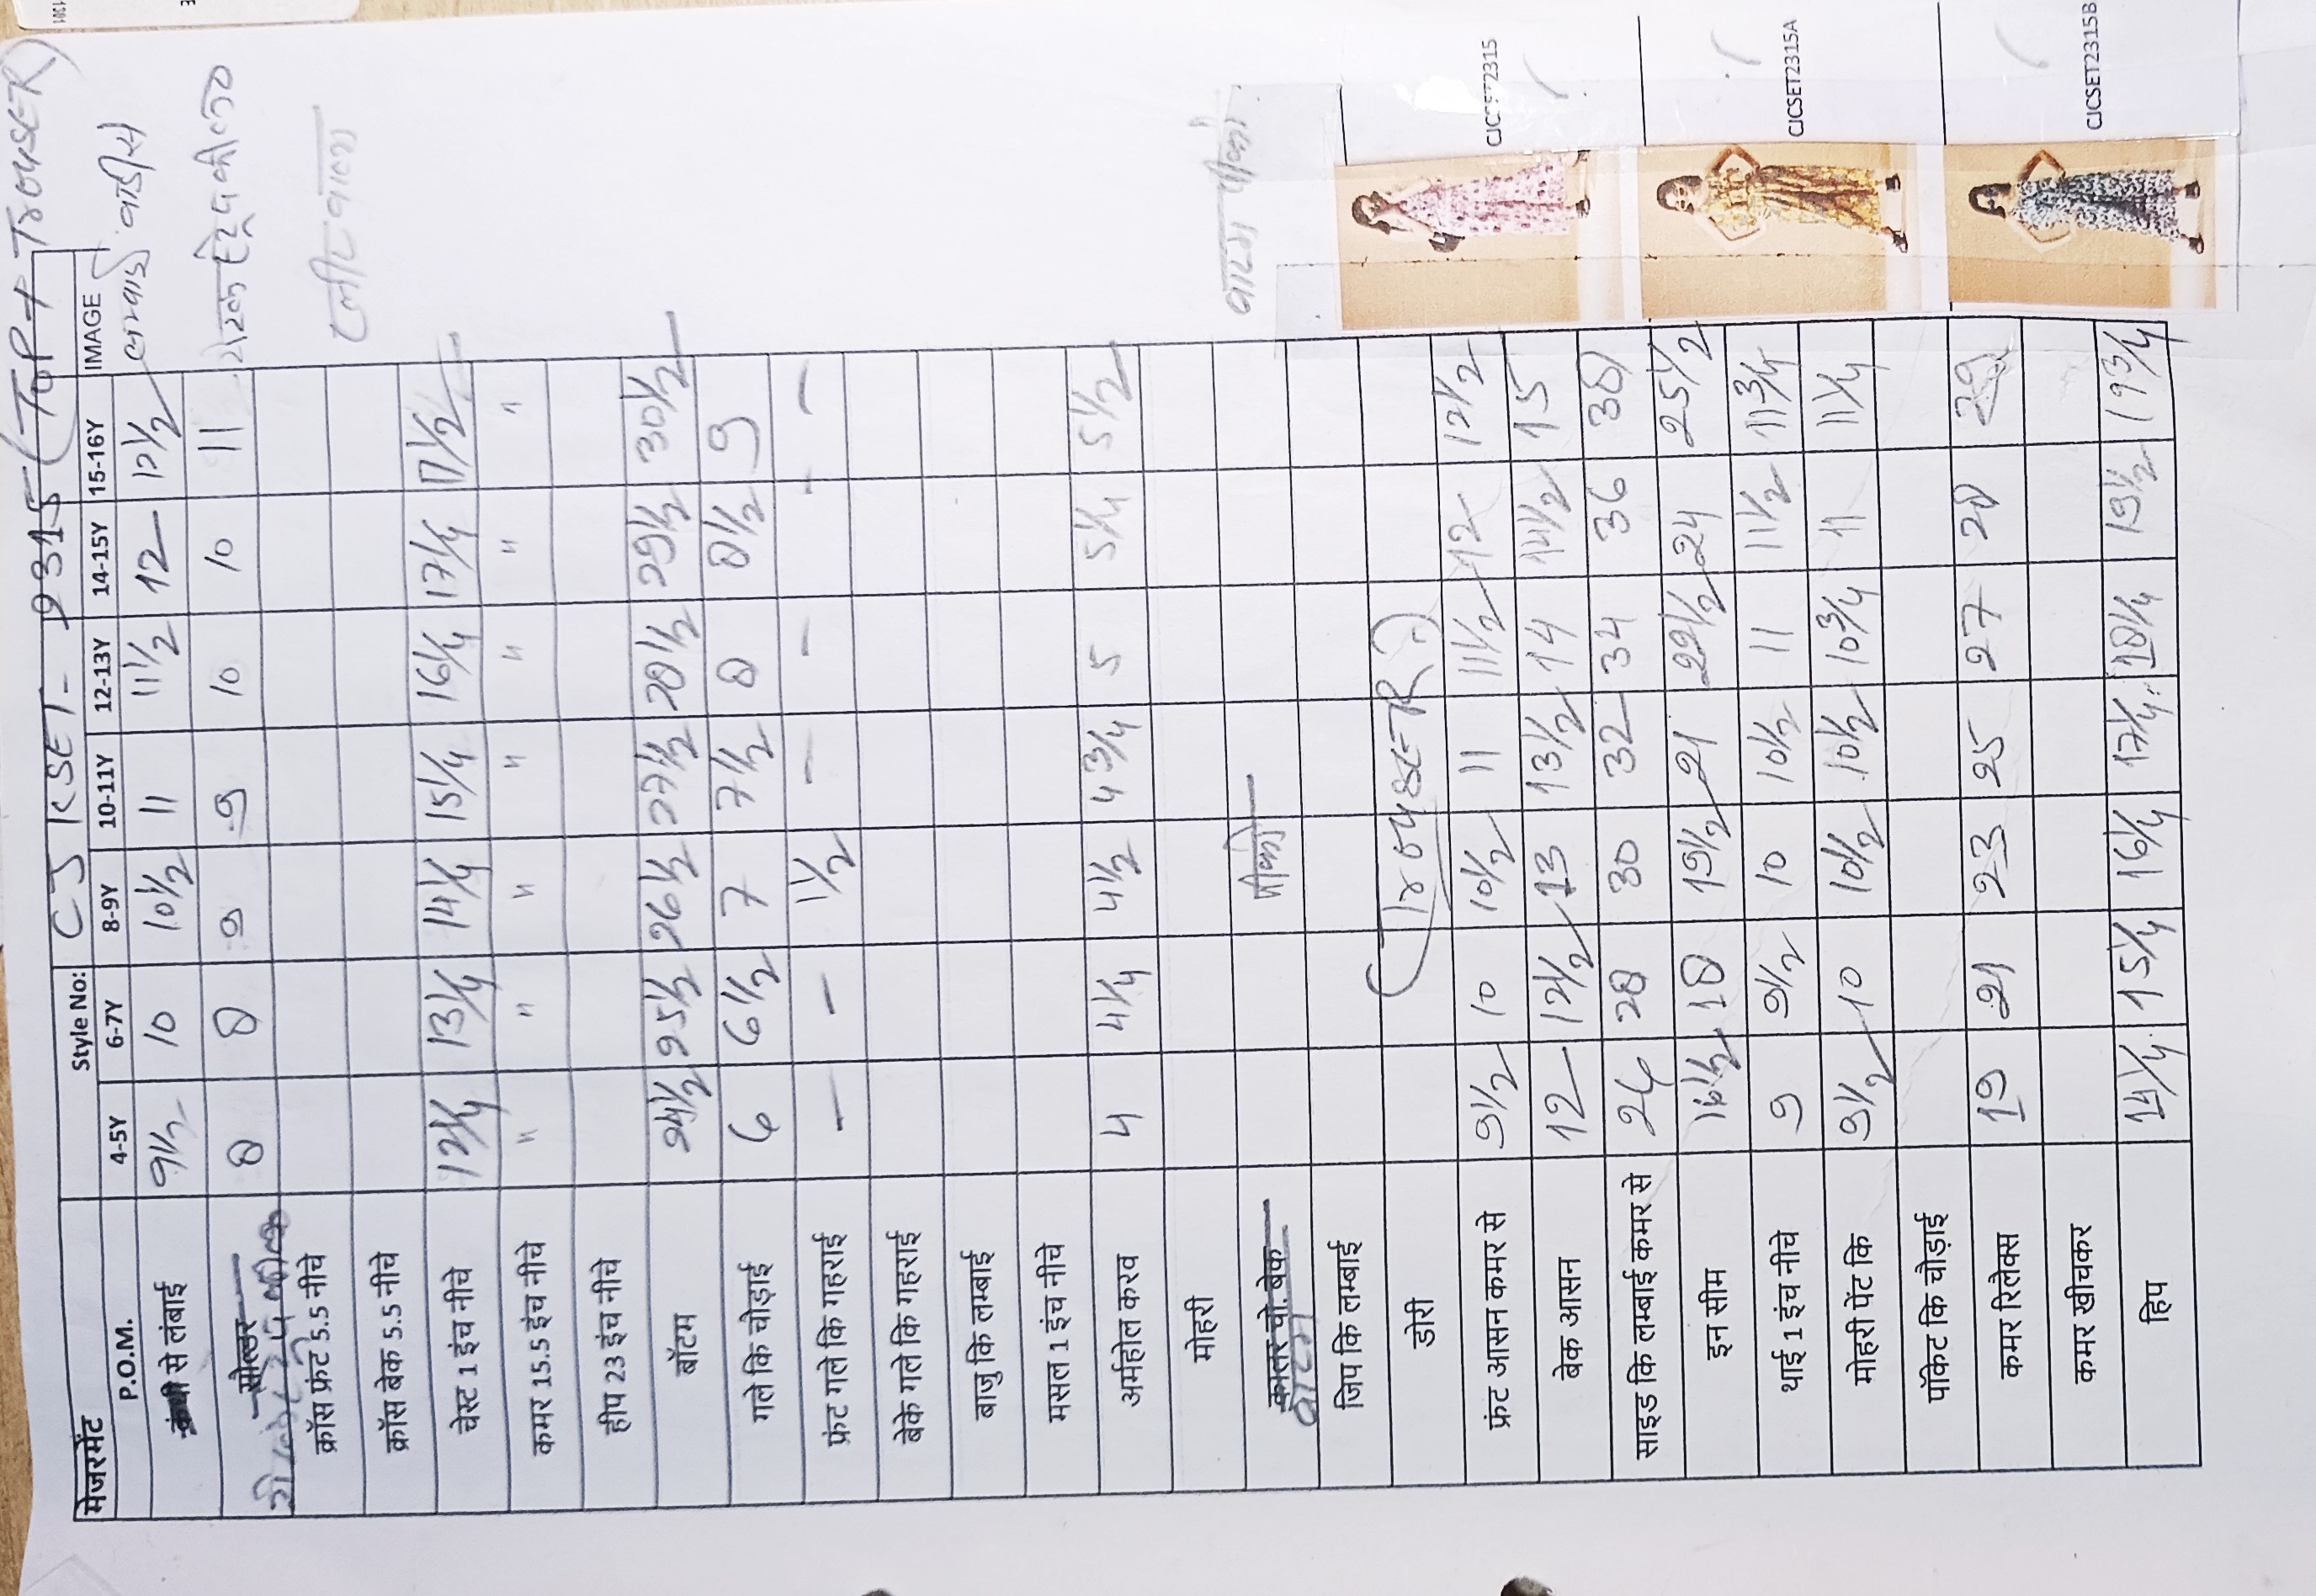 CJ KSET - 2315 (TOP + TROUSER)
मेजरमेंट Style No:
P.O.M. 4-5Y 6-7Y 8-9Y 10-11Y 12-13Y 14-15Y 15-16Y IMAGE
से लंबाई 9 1/2 10 10 1/2 11 11 1/2 12 12 1/2
सोल्डर 8 8 9 9 10 10 11
क्रॉस फ्रंट 5.5 नीचे
क्रॉस बेक 5.5 नीचे
चेस्ट 1 इंच नीचे 12 1/4 13 1/4 14 1/4 15 1/4 16 1/4 17 1/4 17 1/2
कमर 15.5 इंच नीचे " " " " " " "
हीप 23 इंच नीचे
बॉटम 24 1/2 25 1/2 26 1/2 27 1/2 28 1/2 29 1/2 30 1/2
गले कि चौड़ाई 6 6 1/2 7 7 1/2 8 8 1/2 9
फ्रंट गले कि गहराई - - 1 1/2 - - - -
बेके गले कि गहराई
बाजु कि लम्बाई
मसल 1 इंच नीचे
अर्महोल करव 4 4 1/4 4 1/2 4 3/4 5 5 1/4 5 1/2
मोहरी
कालर पो. बेक पीको
बाटम
जिप कि लम्बाई
डोरी (TrouseR)
फ्रंट आसन कमर से 9 1/2 10 10 1/2 11 11 1/2 12 12 1/2
बेक आसन 12 12 1/2 13 13 1/2 14 14 1/2 15
साइड कि लम्बाई कमर से 26 28 30 32 34 36 38
इन सीम 16 1/2 18 19 1/2 21 22 1/2 24 25 1/2
थाई 1 इंच नीचे 9 9 1/2 10 10 1/2 11 11 1/2 11 3/4
मोहरी पेंट कि 9 1/2 10 10 1/2 10 1/2 10 3/4 11 11 1/4
पॉकेट कि चौड़ाई
कमर रिलैक्स 19 21 23 25 27 28 29
कमर खीचकर
हिप 14 1/4 15 1/4 16 1/4 17 1/4 18 1/4 19 1/2 19 3/4
बाटम पीको
CJCSET2315
CJCSET2315A
CJCSET2315B